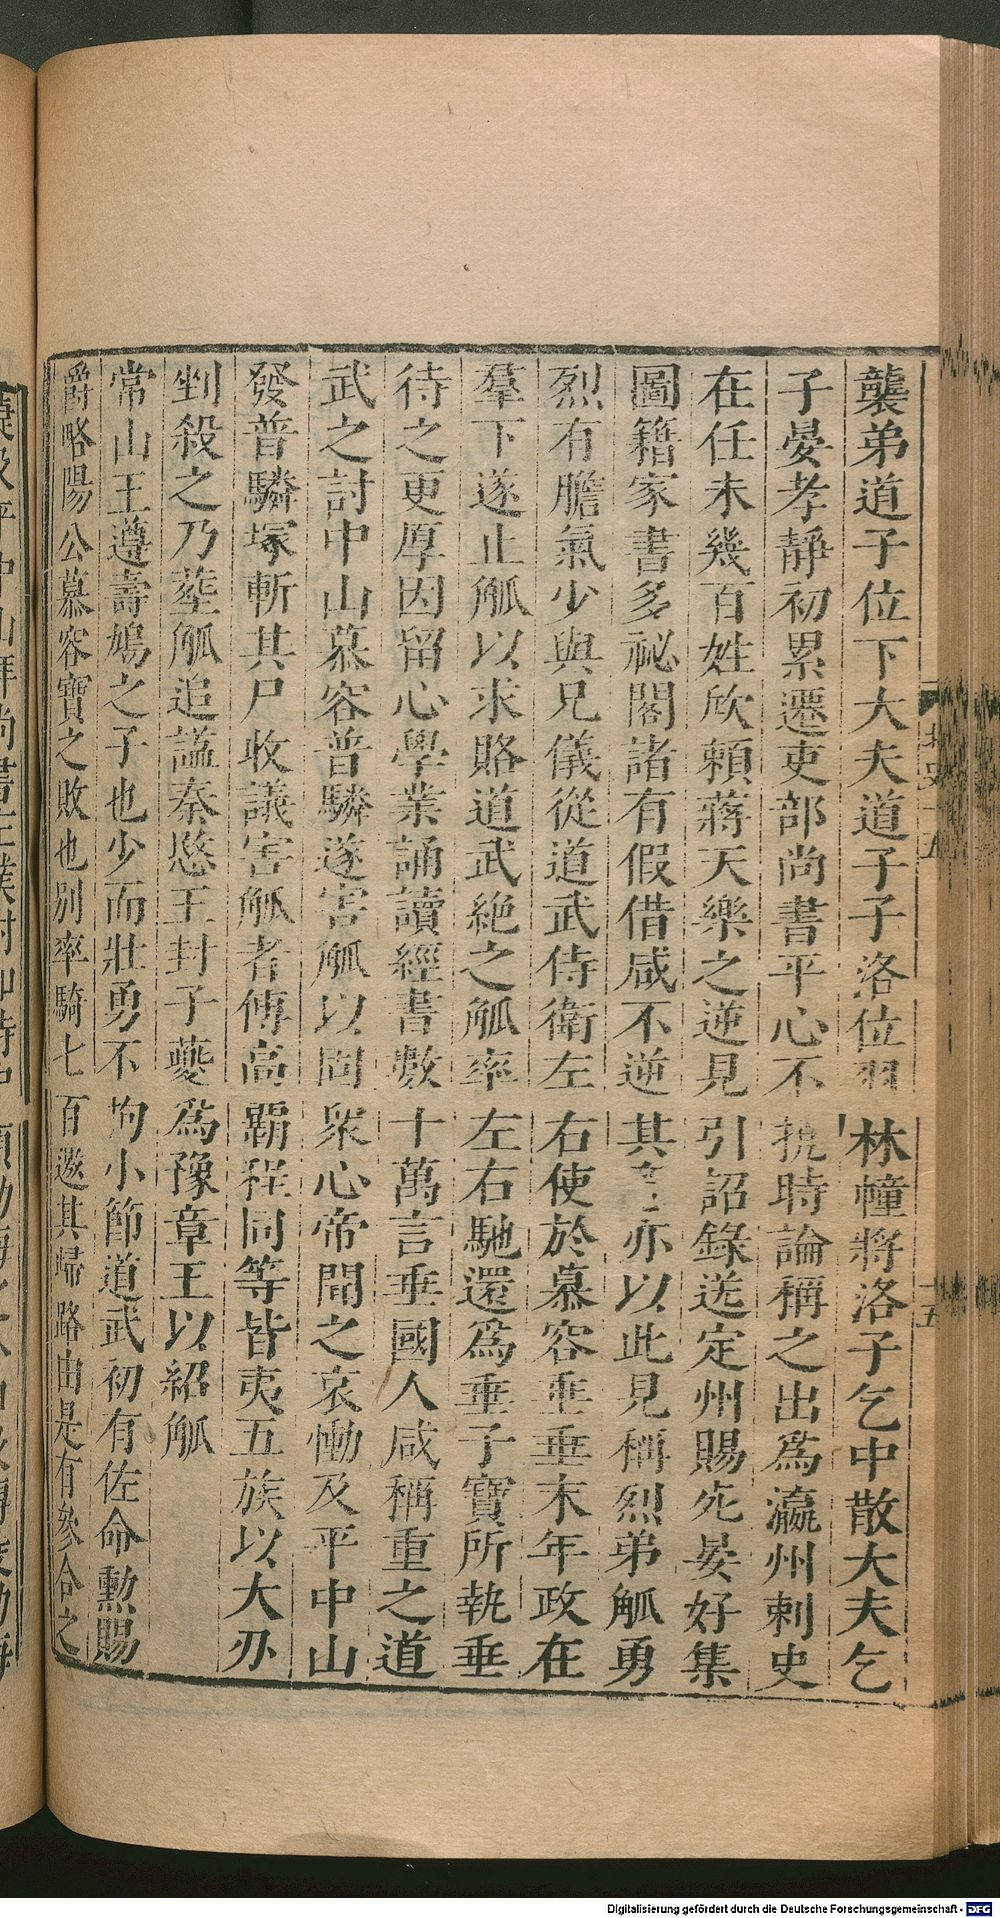 襲弟道子位下大夫道子子洛位羽林幢將洛子乞中散大夫乞
子晏孝靜初累遷吏部尚書平心不撓時論稱之出為瀛州刺史
在任未幾百姓欣賴蔣天樂之逆見引詔錄送定州賜死晏好集
圖籍家書多祕閣諸有假借咸不逆其亦以此見稱烈弟觚勇
烈有膽氣少與兄儀從道武侍衛左右使於慕容垂垂末年政在
羣下遂止觚以求賂道武絕之觚率左右馳還為垂子寶所執垂
待之更厚因留心學業誦讀經書數十萬言垂國人咸稱重之道
武之討中山慕容普驎遂害觚以固眾心帝聞之哀慟及平中山
發普驎塚斬其尸收議害觚者傅高霸程同等皆夷五族以大刃
剉殺之乃塟觚追諡秦愍王封子夔為豫章王以紹觚
常山王遵壽鳩之子也少而壯勇不拘小節道武初有佐命勳賜
爵略陽公慕容寶之敗也別率騎七百邀其歸路由是有參合之
北史十五
十五
Digitalisierung gefördert durch die Deutsche Forschungsgemeinschaft - DFG